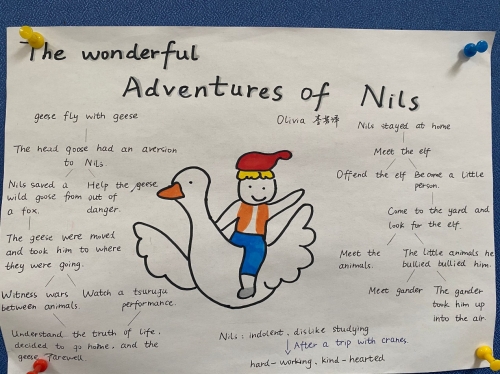 The wonderful
Adventures of Nils
Olivia
geese fly with geese
The head goose had an aversion
to Nils.
Nils saved a
wild goose from
a fox.
Help the geese
out of
danger.
The geese were moved
and took him to where
they were going.
Witness wars
between animals.
Watch a tsurugu
performance.
Understand the truth of life.
decided to go home. and the
geese farewell.
Nils stayed at home
Meet the elf
Offend the elf
Become a little
person.
Come to the yard and
look for the elf.
Meet the
animals.
The little animals he
bullied bullied him.
Meet gander
The gander
took him up
into the air.
Nils: indolent. dislike studying
After a trip with cranes.
hard-working. kind-hearted